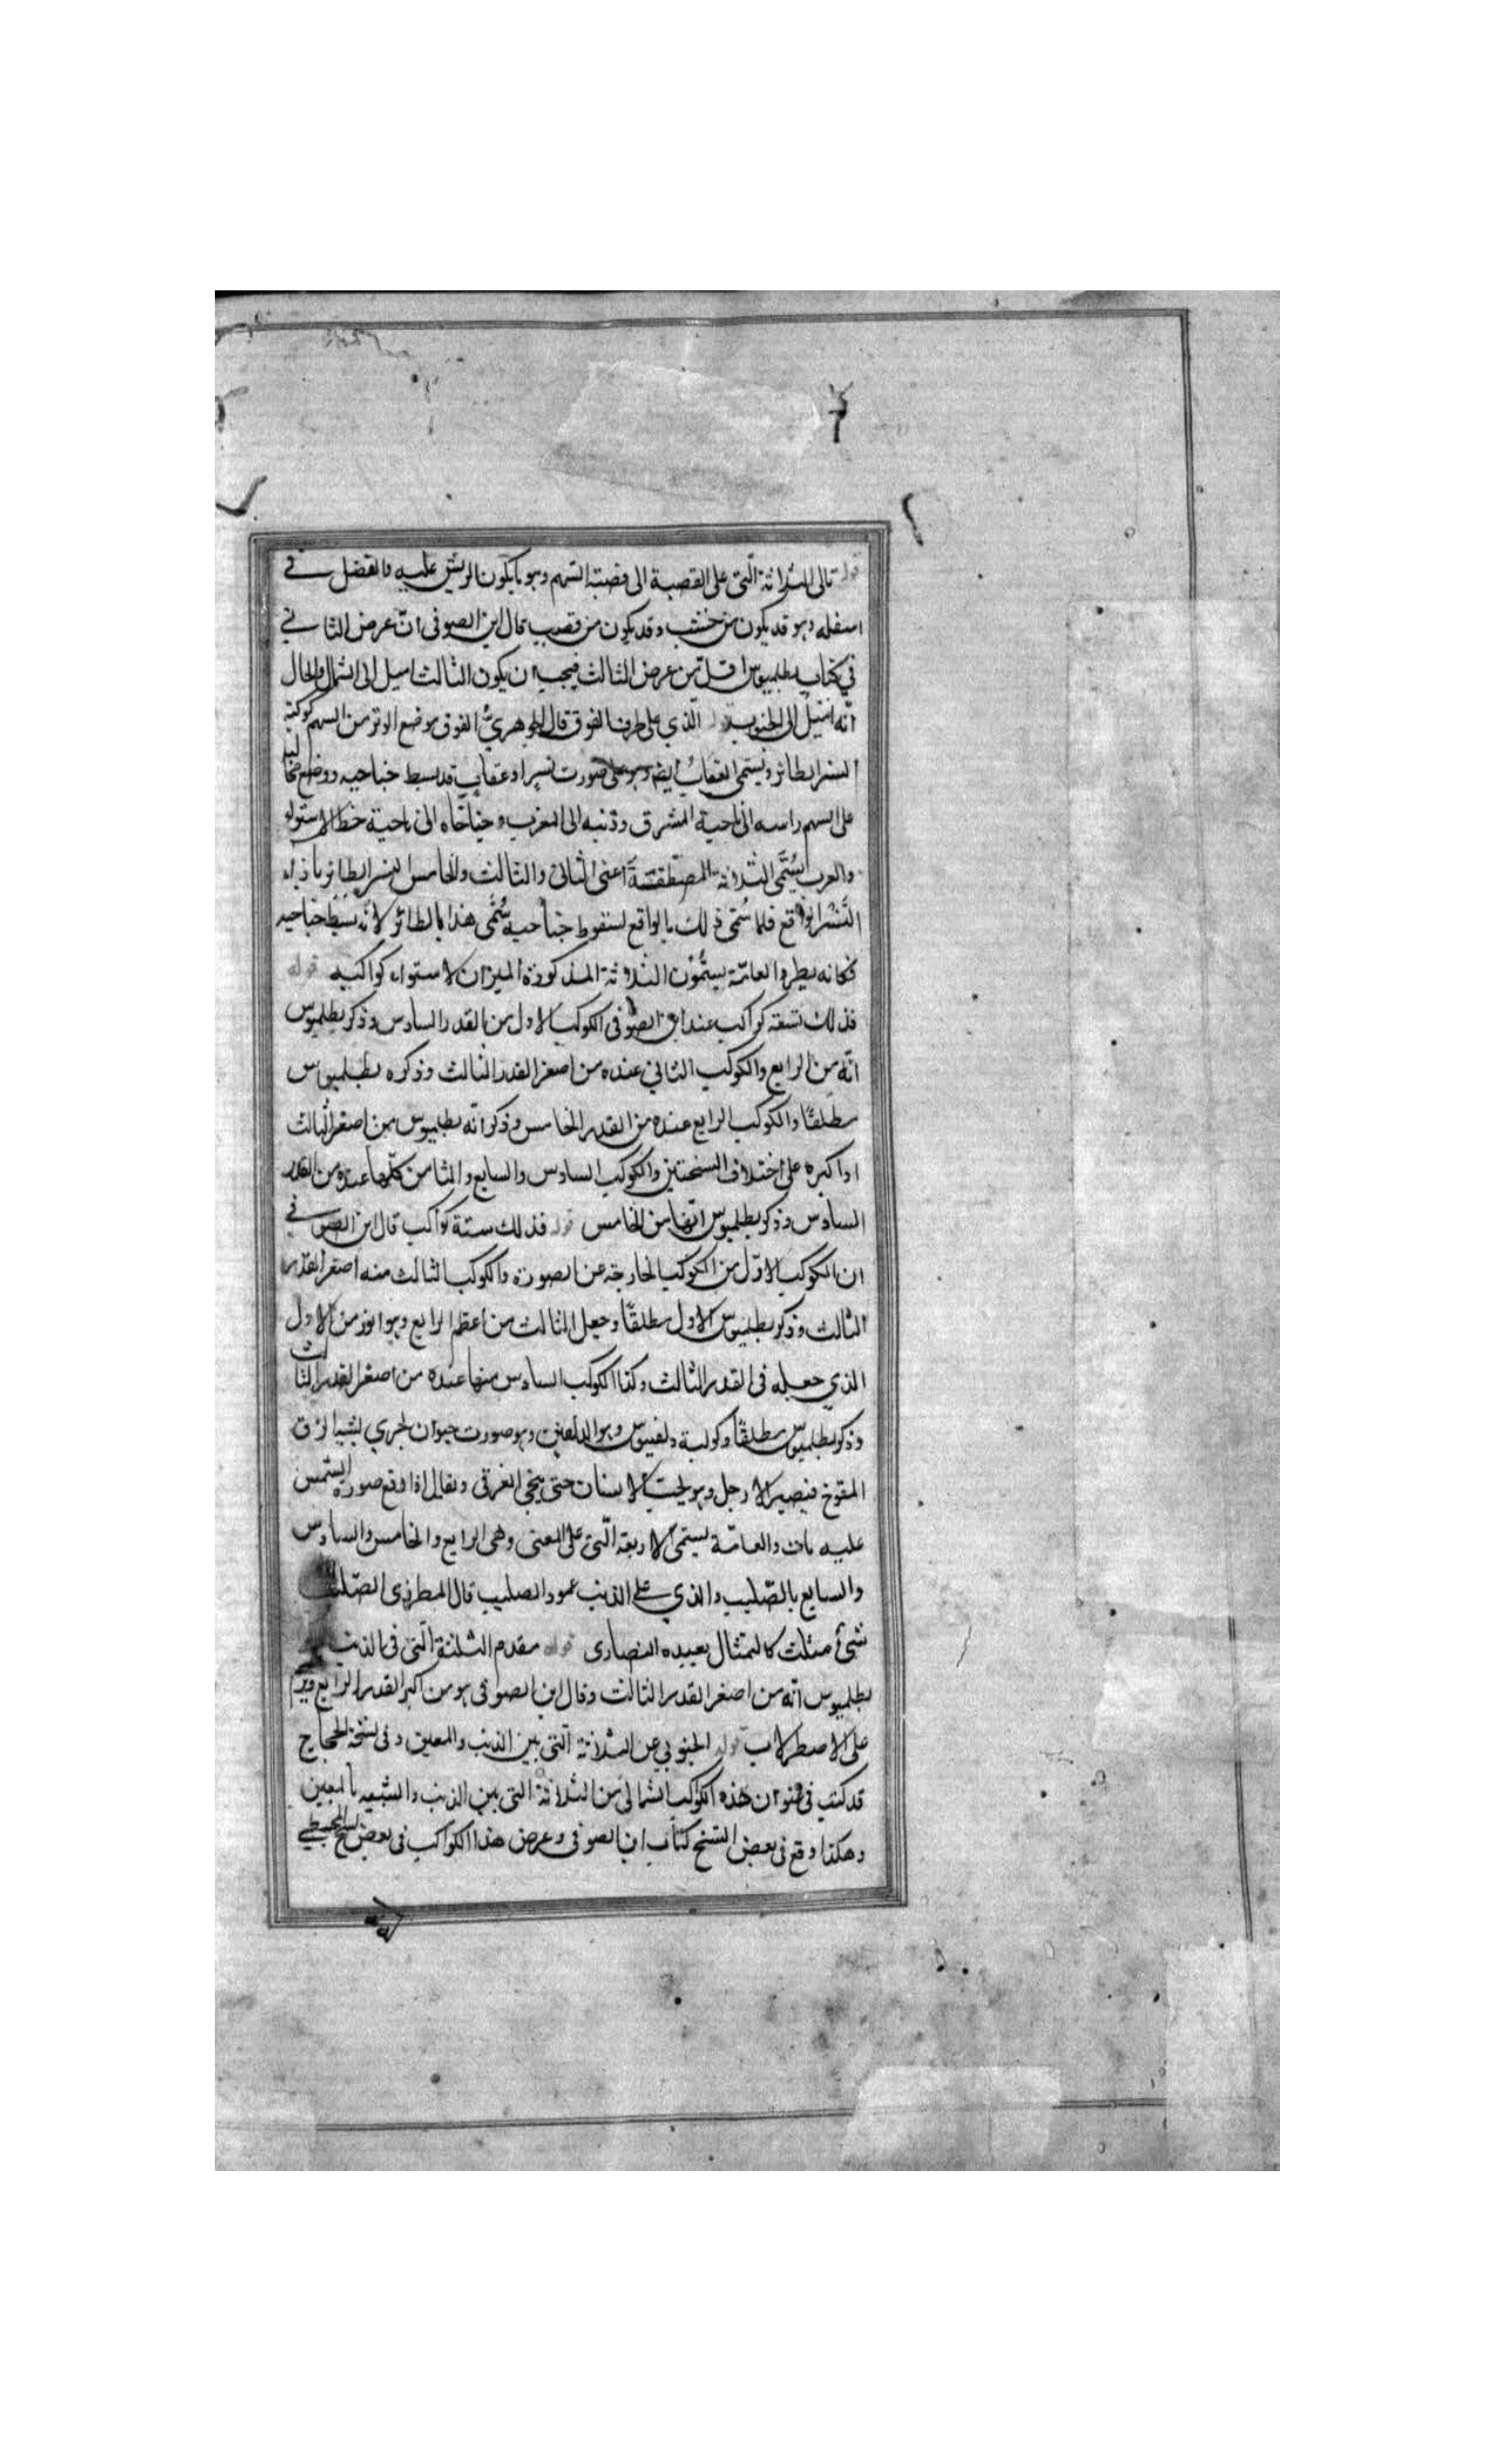 قوله تالى الثلاثة التى على القصبة الى قصبة السهم وهو ما يكون الريش عليه والفضل في
اسفله وهو قد يكون من خشب وقد يكون من قصب قال ابن الصوفى انّ عرض الثاني
في كتاب بطلميوس اقلّ من عرض الثالث فيجب ان يكون الثالث اميل الى الشمال والحال
انّه اميل الى الجنوب قوله الّذي على طرف الفوق قال الجوهريُّ الفوق موضع الوتر من السهم كوكبة
النسر الطائر ويسمى العقاب ايضا وهو على صورت نسر او عقاب قد بسط جناحيه ووضع مخالبه
على السهم راسه الى ناحية المشرق وذنبه الى المغرب وجناحاه الى ناحية خط الاستواء
والعرب يُسَمَّى الثلاثة المصطفة اعنى الثانى والثالث والخامس النسر الطائر باذاء
النَّسْر الواقع فلما سُمّى ذلك بالواقع لسقوط جناحيه سُمّى هذا بالطائر لانّه بسط جناحيه
فكانه يطير والعامّة يسمُّوْن الثلاثة المذكورة الميزان لاستواء كواكبه قوله
فذلك تسعة كواكب عند ابن الصوفى الكوكب الاول من القدر السادس وذكر بطلميوس
انّه من الرابع والكوكب الثاني عنده من اصغر القدر الثالث وذكره بطلميوس
مطلقًا والكوكب الرابع عنده من القدر الخامس وذكر انه بطلميوس من اصغر الثالث
او اكبره على اختلاف النسختين والكوكب السادس والسابع والثامن كلّها عنده من القدر
السادس وذكر بطلميوس انّها من الخامس قوله فذلك ستة كواكب قال ابن الصوفي
ان الكوكب الاوّل من الكوكب الخارجة عن الصورة والكوكب الثالث منه اصغر القدر
الثالث وذكر بطلميوس الاول مطلقًا وجعل الثالث من اعظم الرابع وهو انور من الاول
الذي جعله فى القدر الثالث وكذا الكوكب السادس منها عنده من اصغر القدر الثالث
وذكر بطلميوس مطلقًا وكوكبة دلفيوس وهو الدلفين وهو صورت حيوان بحري يشبه الزق
المنفوخ قيصير الارجل وهو يحب الانسان حتى ينجى الغرقى ويقال اذا وقع صورة الشمس
عليه مات والعامّة يسمى الاربعة الّتى على المعنى وهى الرابع والخامس والسادس
والسابع بالصّليب والذي على الذنب عمود الصليب قال المطرزى الصّليب
شئ مثلث كالتمثال يعبده النصارى قوله مقدم الثلثة الّتى فى الذنب
بطلميوس انّه من اصغر القدر الثالث وقال ابن الصوفى هو من اكبر القدر الرابع
على الاصطرلاب قوله الجنوبي عن الثلاثة الّتى بين الذنب والمعين وفى نسخة الحجاج
قد كتب فى عنوان هذه الكواكب الشمالى من الثلاثة التى بين الذنب والشبيه بالمعين
وهكذا وقع فى بعض النسخ كتاب ابن الصوفى وعرض هذا الكواكب فى بعض نسخ المجسطي